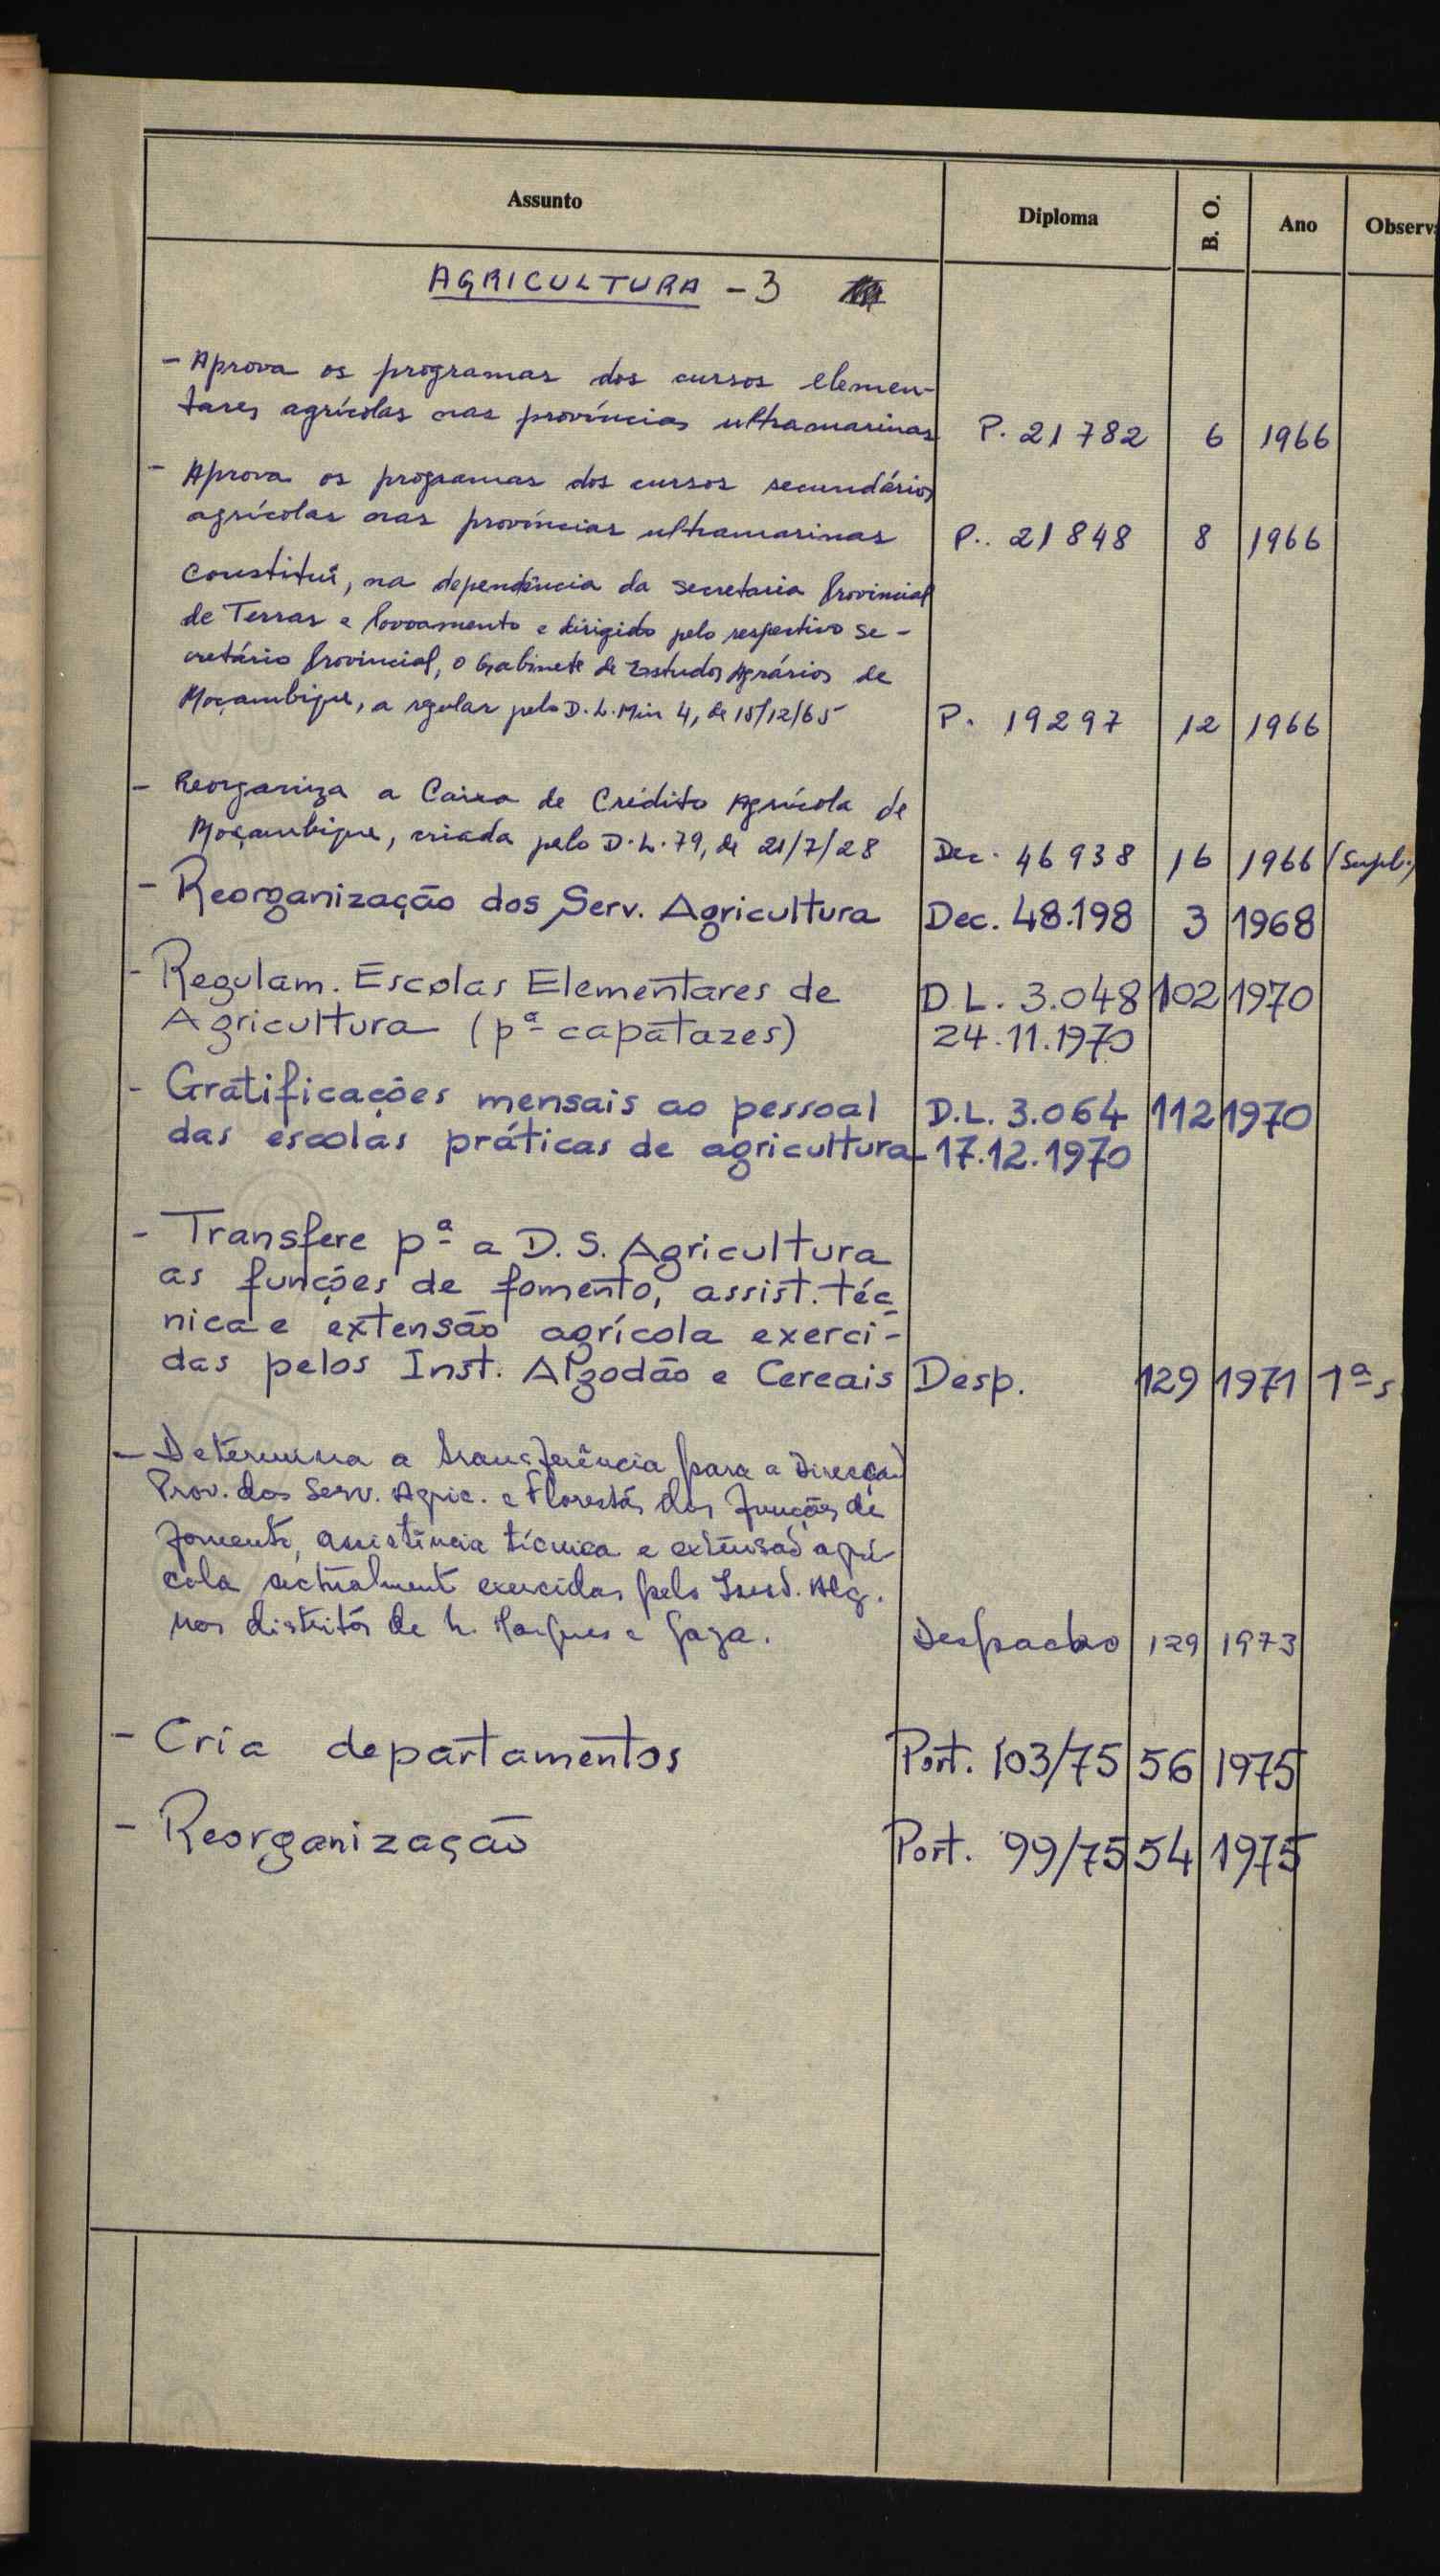 Assunto Diploma B. O. Ano Observ
AGRICULTURA - 3
- Aprova os programas dos cursos elemen-
tares agrícolas nas províncias ultramarinas P. 21782 6 1966
- Aprova os programas dos cursos secundários
agrícolas nas províncias ultramarinas P. 21848 8 1966
Constitui, na dependência da Secretaria Provincial
de Terras e Povoamento e dirigido pelo respectivo Se-
cretário Provincial, o Gabinete de Estudos Agrários de
Moçambique, a regular pelo D.L. Min 4, de 15/12/65 P. 19297 12 1966
- Reorganiza a Caixa de Crédito Agrícola de
Moçambique, criada pelo D.L. 79, de 21/7/28 Dec. 46938 16 1966 (Supl.)
- Reorganização dos Serv. Agricultura Dec. 48.198 3 1968
- Regulam. Escolas Elementares de D.L. 3.048 102 1970
Agricultura (pª capatazes) 24.11.1970
- Gratificações mensais ao pessoal D.L. 3.064 112 1970
das escolas práticas de agricultura 17.12.1970
- Transfere pª a D. S. Agricultura
as funções de fomento, assist. téc
nica e extensão agrícola exerci-
das pelos Inst. Algodão e Cereais Desp. 129 1971 1ª s
- Determina a transferência para a Direcção
Prov. dos Serv. Agric. e Florestas das funções de
fomento, assistência técnica e extensão agrí-
cola actualmente exercidas pelo Inst. Alg.
nos distritos de L. Marques e Gaza. Despacho 129 1973
- Cria departamentos Port. 103/75 56 1975
- Reorganização Port. 99/75 54 1975